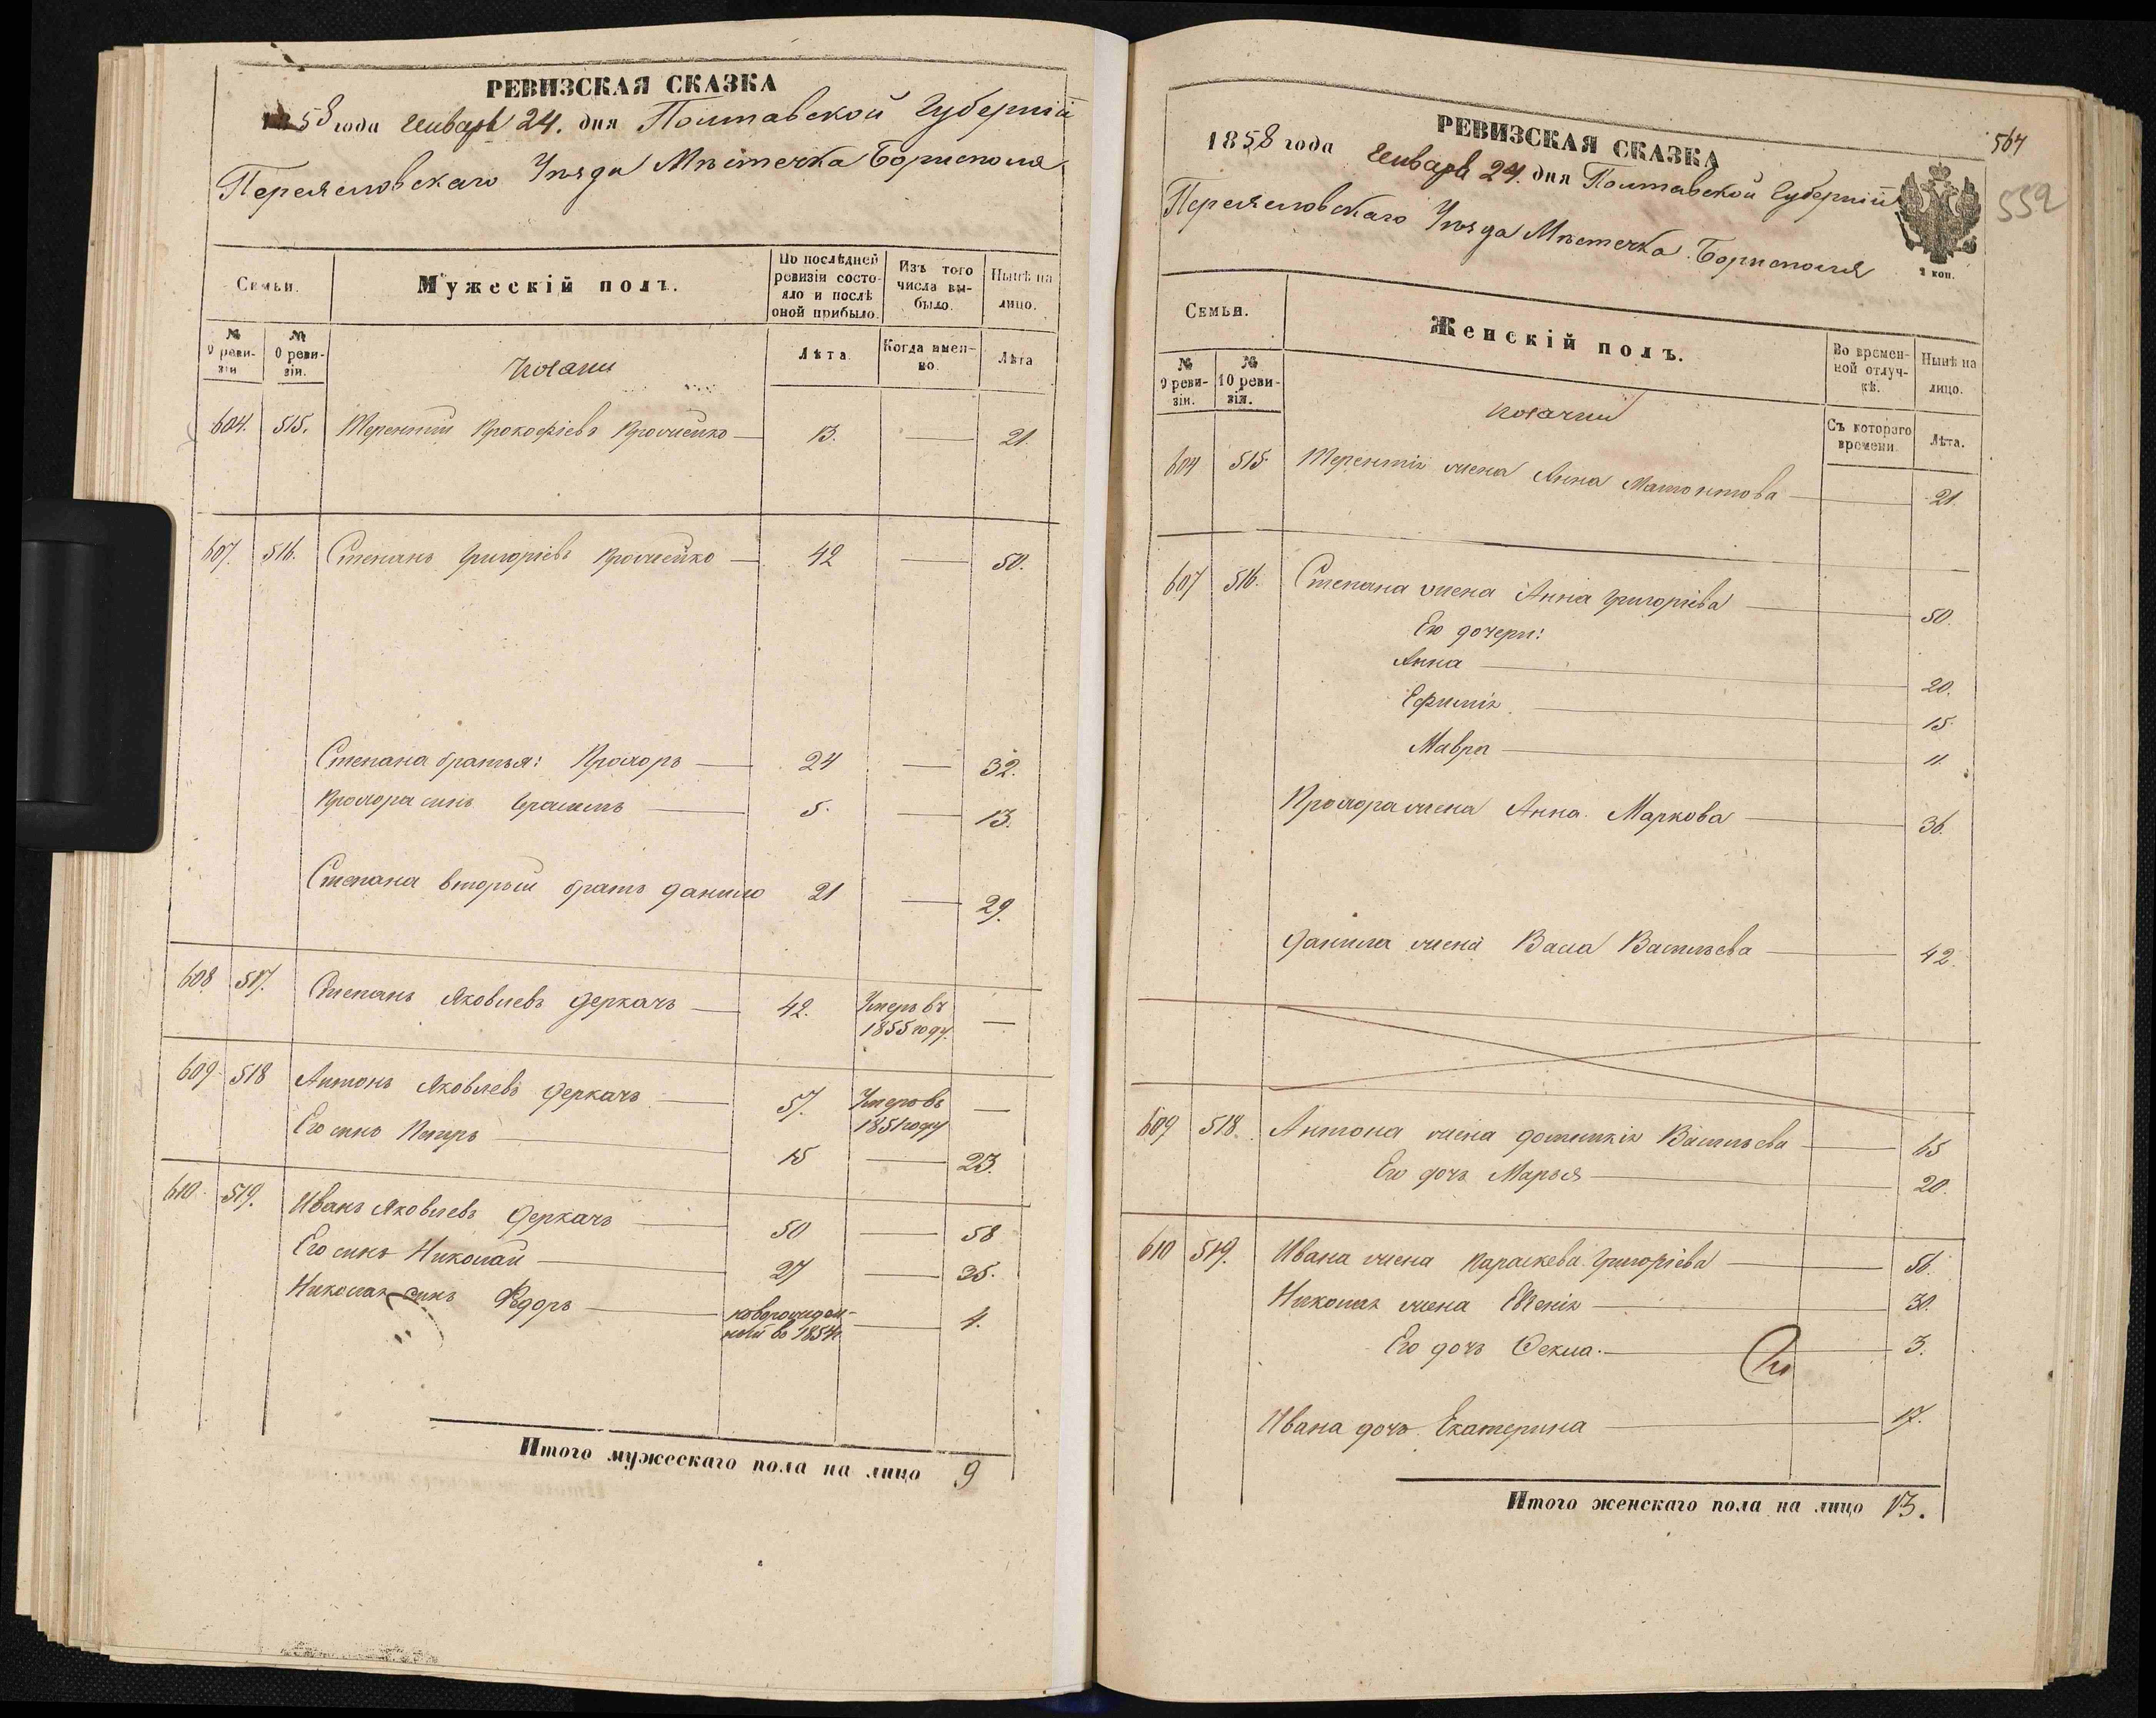 РЕВИЗСКАЯ СКАЗКА
1858 года Генваря 24. дня Полтавской Губерніи
Переясловскаго Уѣзда Мѣстечка Борисполя
Семьи.
Мужескій полъ.
По послѣдней ревизіи состояло и послѣ оной прибыло.
Изъ того числа выбыло.
Нынѣ на лицо.
№ 9 ревизіи
№ 10 ревизіи.
Козаки
Лѣта.
Когда именно.
Лѣта
604. 515. Терентій Прокофіевъ — 13. — 21.
607. 516. Степанъ Григоріевъ — 42 — 50.
Степана братья: Прохоръ — 24 — 32.
Прохора сынъ Герасимъ — 5. — 13.
Степана вторый братъ Данило 21 — 29.
608 517. Степанъ Яковлевъ Деркачъ — 42. Умеръ въ 1855 году. —
609 518 Антонъ Яковлевъ Деркачъ — 57. Умеръ въ 1851 году —
Его сынъ Петръ — 15 — 23.
610. 519. Иванъ Яковлевъ Деркачъ — 50 — 58
Его сынъ Николай — 27 — 35.
Николая сынъ Ѳедоръ — новорожденный въ 1854 — 4.
Итого мужескаго пола на лицо 9
564
559
РЕВИЗСКАЯ СКАЗКА
1858 года Генваря 24. дня Полтавской Губерніи
Переясловскаго Уѣзда Мѣстечка Борисполя
2 коп.
Семьи.
Женскій полъ.
Во временной отлучкѣ.
Нынѣ на лицо.
№ 9 ревизіи.
№ 10 ревизіи.
Козачки
Съ котораго времени.
Лѣта.
604 515. Терентія жена Анна Мамонтова — 21.
607 516. Степана жена Анна Григоріева — 50.
Его дочери:
Анна — 20.
Ефимія — 15.
Мавра — 11.
Прохора жена Анна Маркова — 36.
Данила жена Васса Васильева — 42.
609 518. Антона жена Домникія Васильева — 65
Его дочь Марья — 20.
610 519. Ивана жена Параскева Григоріева — 56.
Николая жена Евгенія — 30.
Его дочь Ѳекла. — 3.
Ивана дочь Екатерина — 17.
Итого женскаго пола на лицо 13.